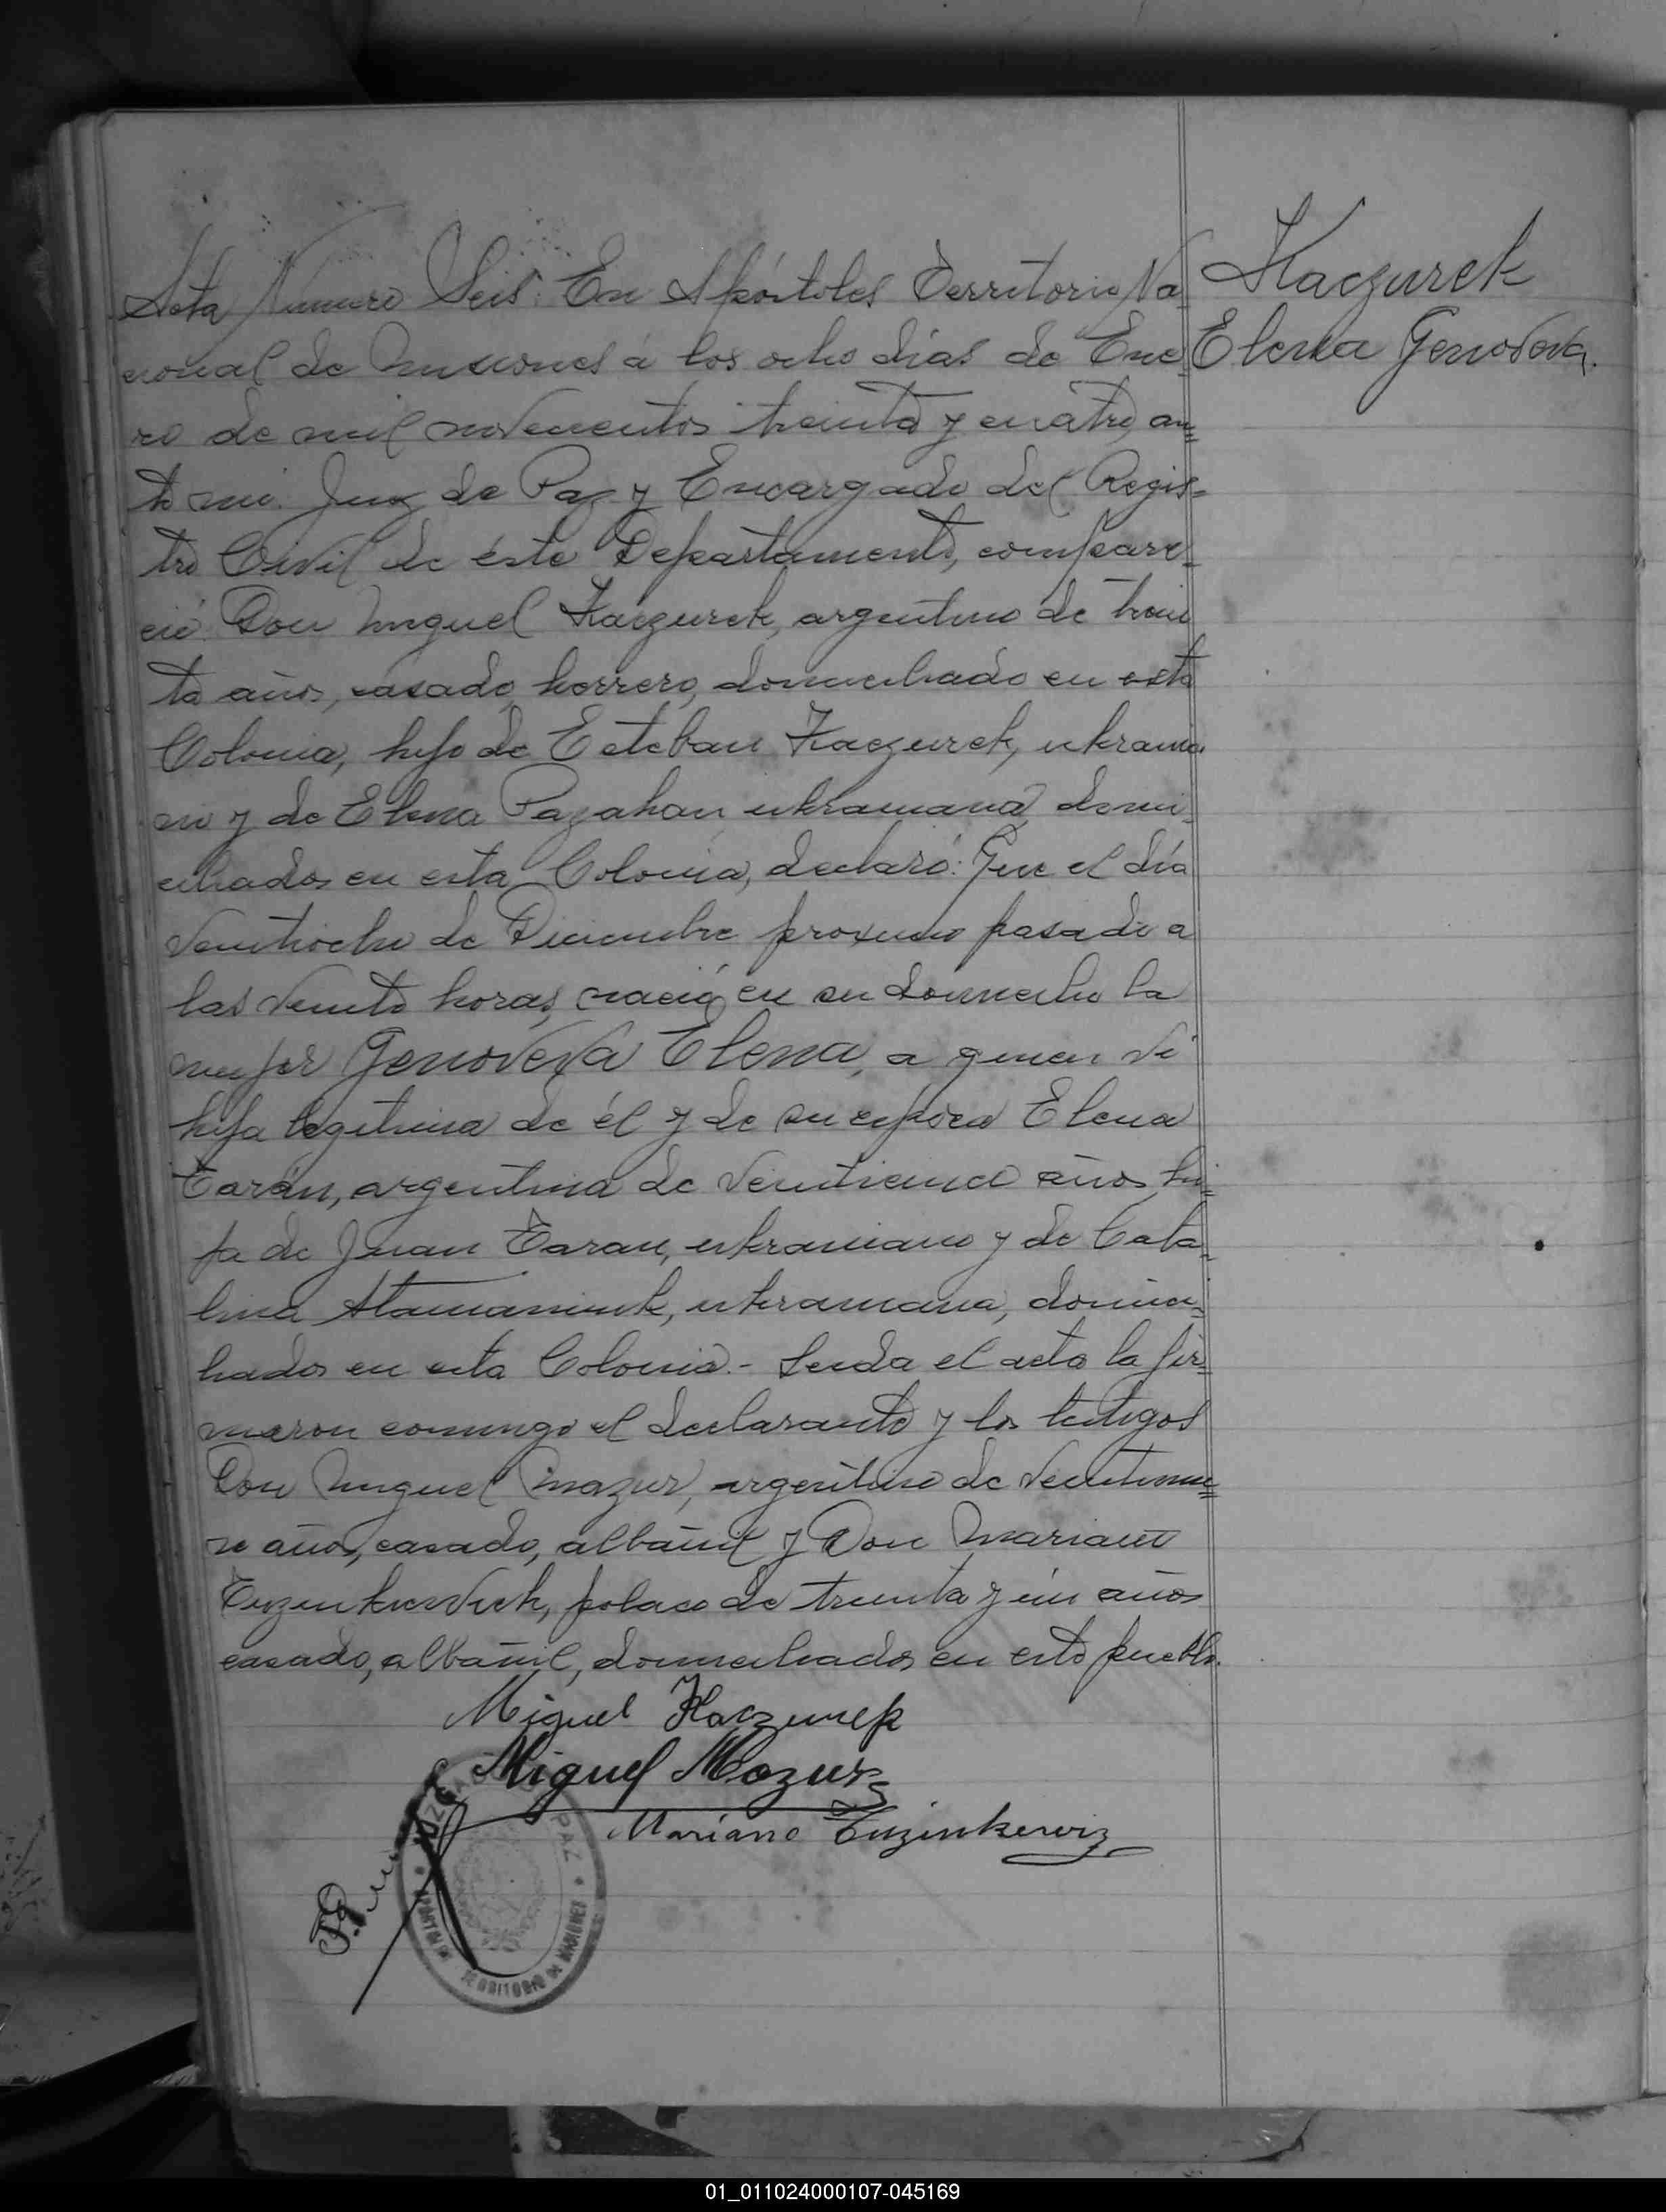 Acta Numero Seis: En Apóstoles Territorio Na
Kaczurek
cional de Misiones á los ocho días de Ene
Elena Genoveva.
ro de mil novecientos treinta y cuatro, an=
te mi Juez de Paz y Encargado del Regis=
tro Civil de éste Departamento, compare=
ció Don Miguel Kaczurek, argentino de trein
ta años, casado, herrero, domiciliado en esta
Colonia, hijo de Esteban Kaczurek, ukrania
no y de Elena Pazahan, ukraniana, domi
ciliados en esta Colonia, declaró: Que el día
veintiocho de Diciembre proximo pasado a
las veinte horas, nació en su domicilio la
mujer Genoveva Elena, a quien vi
hija legitima de él y de su esposa Elena
Tarán, argentina de veinticinco años, hi=
ja de Juan Taran, ukraniano y de Cata=
lina Atamaniuk, ukraniana, domici=
liados en esta Colonia.- Leida el acta la fir=
maron conmigo el declarante y los testigos
Don Miguel Mazur, argentino de veintinue=
ve años, casado, albañil y Don Mariano
polaco de treinta y un años
casado, albañil, domiciliados en este pueblo.
Miguel Kaczurek
Miguel Mazur
Mariano Tuzinkewiz
JUZGADO PAZ
TERRITORIO DE MISIONES
01_011024000107-045169